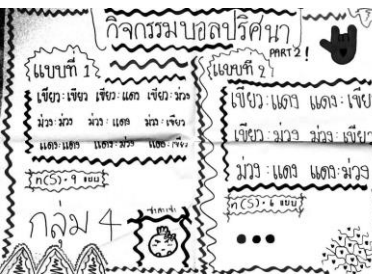 กิจกรรมบอลปริศนา
PART 2!
แบบที่ 1
เขียว:เขียว เขียว:แดง เขียว:ม่วง
ม่วง:ม่วง ม่วง:แดง ม่วง:เขียว
แดง:แดง แดง:ม่วง แดง:เขียว
n(S) = 9 แบบ
กลุ่ม 4
แบบที่ 2
เขียว:แดง แดง:เขีย
เขียว:ม่วง ม่วง:เขีย
ม่วง:แดง แดง:ม่วง
n(S) = 6 แบบ